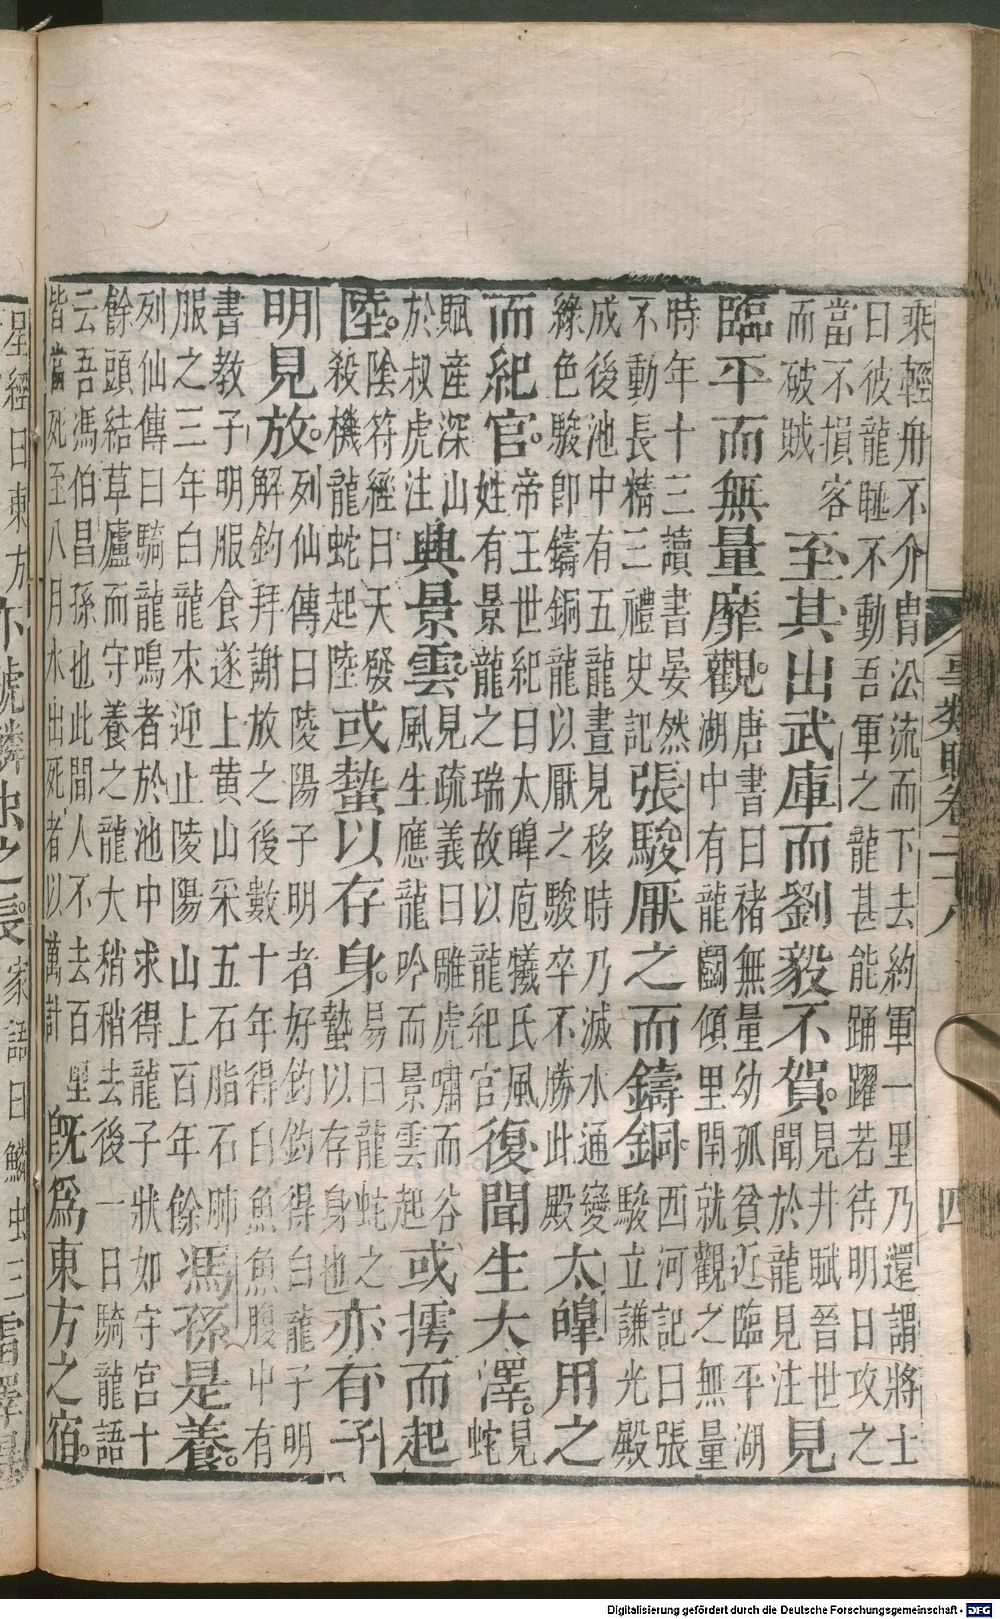 事類賦卷二十八
四
乘輕舟不介冑㳂流而下去約軍一里乃還謂將士
曰彼龍睡不動吾軍之龍甚能踊躍若待明日攻之
當不損客
而破賊
至其出武庫而劉毅不賀。
見井賦晉世
聞於龍見注
見
臨平而無量靡觀。
唐書曰褚無量幼孤貧近臨平湖
湖中有龍鬬傾里閈就觀之無量
時年十三讀書晏然
不動長精三禮史記
張駿厭之而鑄銅。
西河記曰張
駿立謙光殿
成後池中有五龍晝見移時乃滅水通變
綠色駿卽鑄銅龍以厭之駿卒不勝此殿
太皥用之
而紀官。
帝王世紀曰太皥庖犧氏風
姓有景龍之瑞故以龍紀官
復聞生大澤。
見
蛇
賦產深山
於叔虎注
興景雲。
見疏義曰雕虎嘯而谷
風生應龍吟而景雲起
或擩而起
陸。
陰符經曰天發
殺機龍蛇起陸
或蟄以存身。
易曰龍蛇之
蟄以存身也
亦有子
明見放。
列仙傳曰陵陽子明者好釣釣得白龍子明
解釣拜謝放之後數十年得白魚魚腹中有
書教子明服食遂上黃山采五石脂石肺
服之三年白龍來迎止陵陽山上百年餘
馮孫是養。
列仙傳曰騎龍鳴者於池中求得龍子狀如守宮十
餘頭結草廬而守養之龍大稍稍去後一日騎龍語
云吾馮伯昌孫也此間人不去百里
皆當死至八月水出死者以萬計
旣爲東方之宿。
星經曰東方
亦號鱗蟲之長。
家語曰鱗蟲三
Digitalisierung gefördert durch die Deutsche Forschungsgemeinschaft - DFG